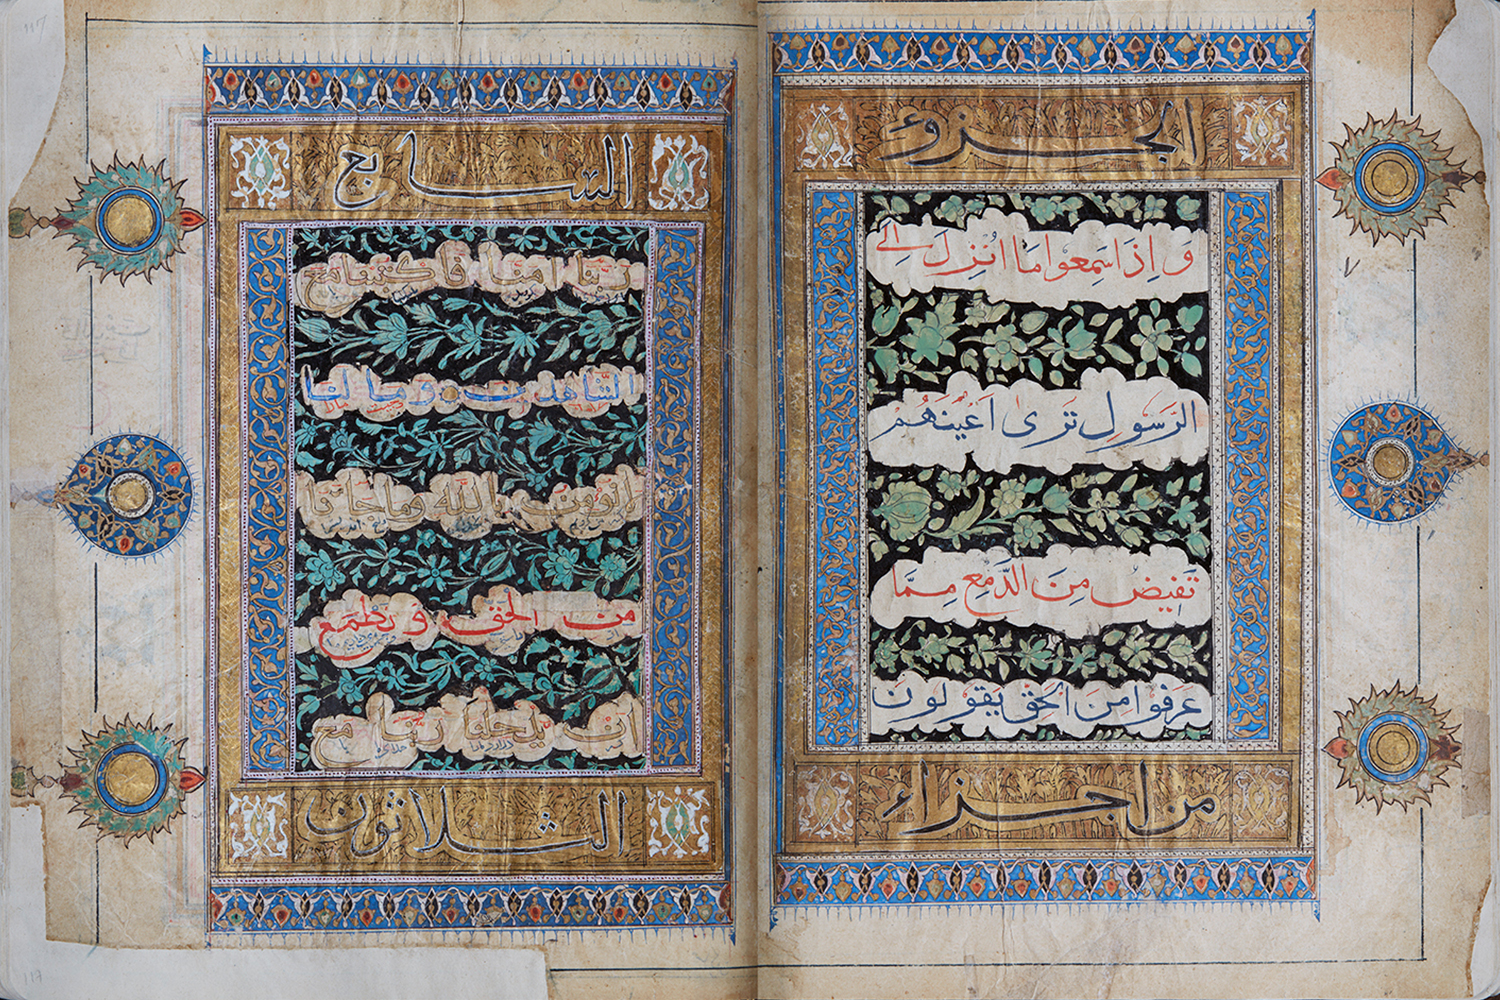 الجزوء
واذا سمعوا ما انزل الى
الرسول ترى اعينهم
تفيض من الدمع مما
عرفوا من الحق يقولون
من اجزاء
السابع
ربنا امنا فاكتبنا مع
الشاهدين وما لنا
لا نؤمن بالله وما جاءنا
من الحق و نطمع
ان يدخلنا ربنا مع
الثلاثون